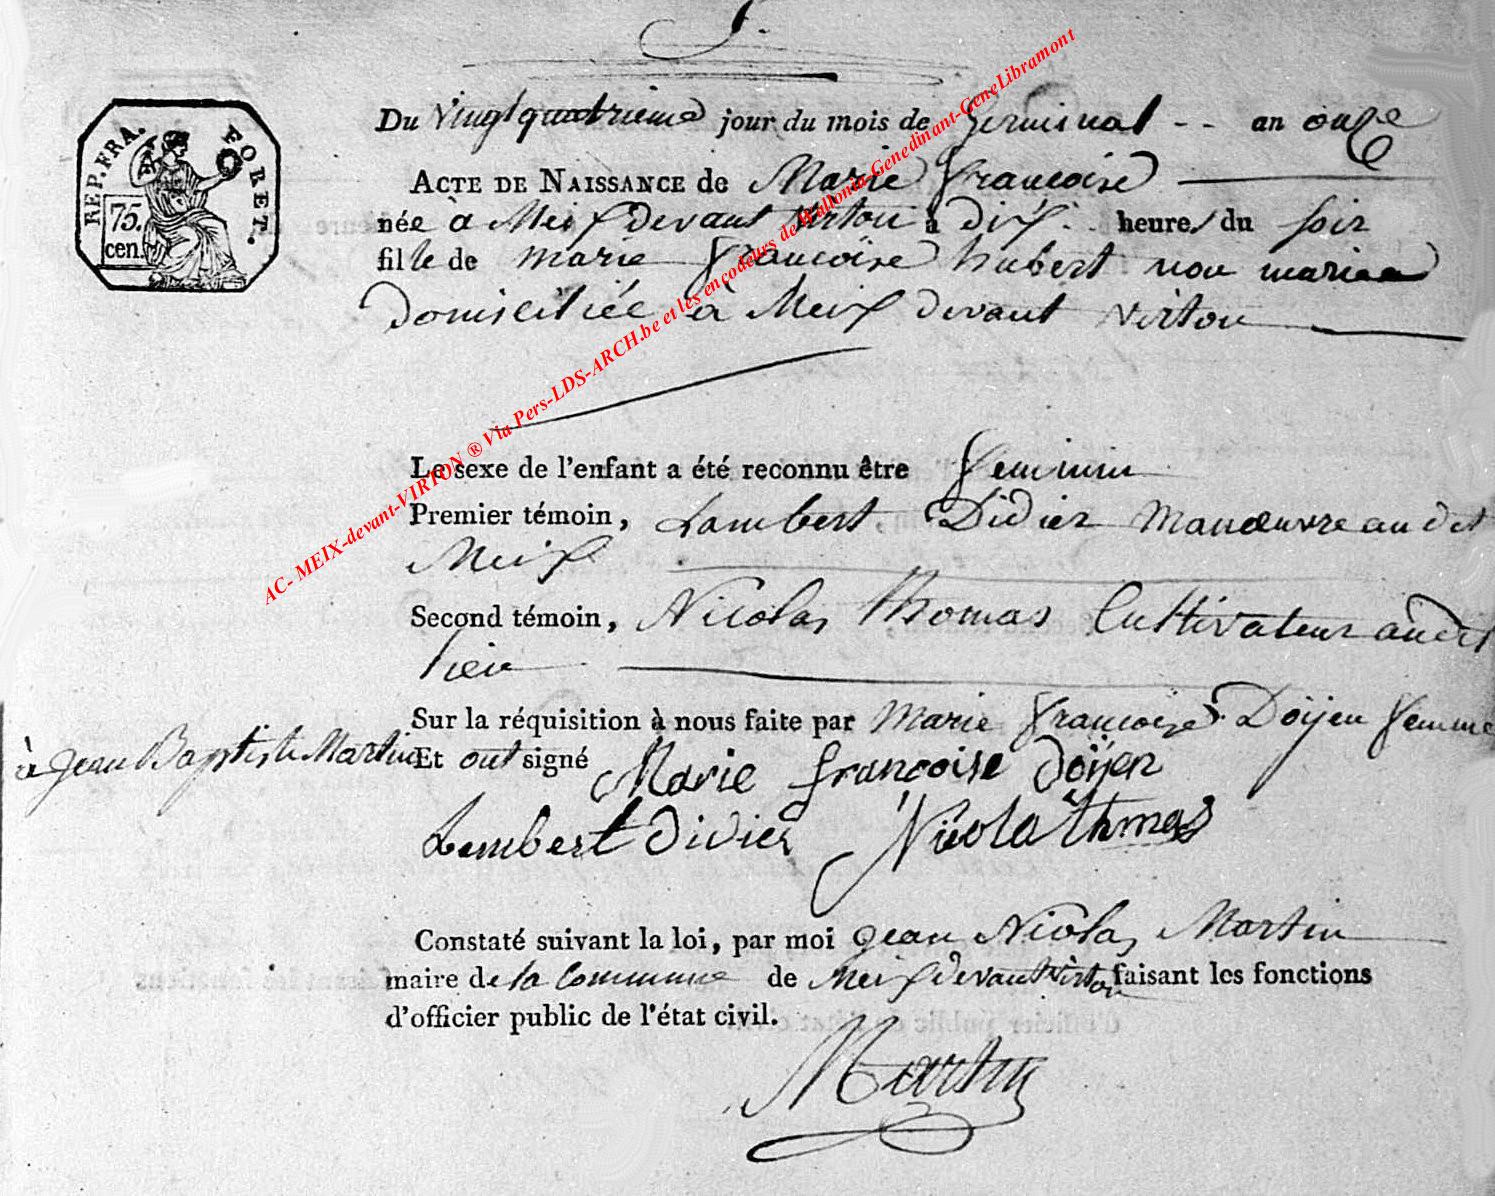 REP. FRA. FORET.
75. cen.
Du Vingt quatrieme jour du mois de Germinal -- an onze
ACTE DE NAISSANCE de Marie Françoise
née à Meix devant virton à dix heures du soir
fille de marie Françoise hubert non mariee
domiciliée à Meix devant virton
Le sexe de l'enfant a été reconnu être feminin
Premier témoin, Lambert Didier Manœuvre au dit
Meix
Second témoin, Nicolas Thomas Cultivateur audit
lieu
Sur la réquisition à nous faite par Marie Françoise Doÿen femme
à Jean Baptiste Martin
Et ont signé Marie françoise doÿen
Lambert didier Nicola thmas
Constaté suivant la loi, par moi Jean Nicolas Martin
maire de la Commune de Meix devant virton faisant les fonctions
d'officier public de l'état civil.
Martin
AC- MEIX-devant-VIRTON ® Via Pers-LDS-ARCH.be et les encodeurs de Wallonia-Genedinant-GeneLibramont